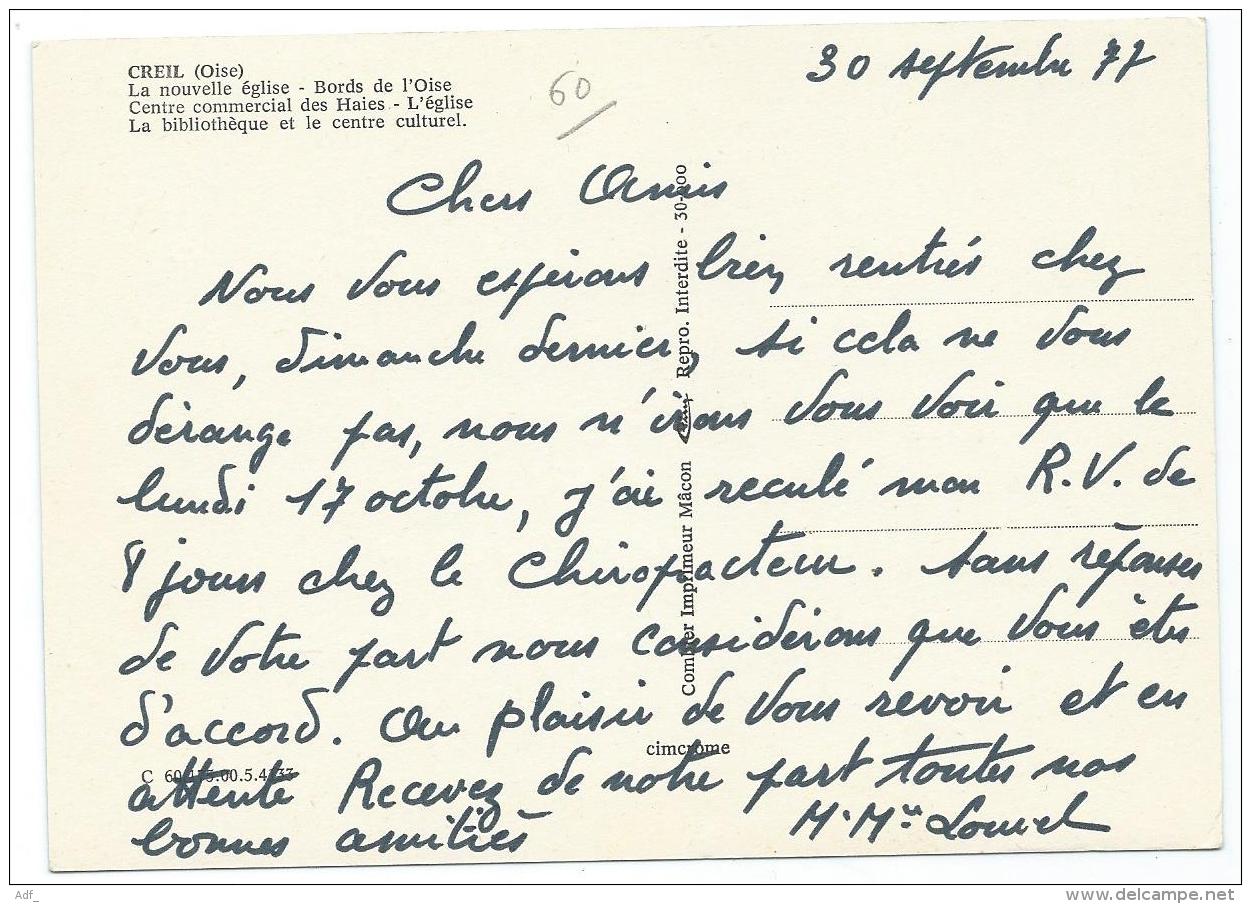 CREIL (Oise)
La nouvelle église - Bords de l'Oise
Centre commercial des Haies - L'église
La bibliothèque et le centre culturel.
60
30 septembre 77
Chers Amis
Nous vous espérons bien rentrés chez
vous, dimanche dernier, si cela ne vous
dérange pas, nous n'irons vous voir que le
lundi 17 octobre, j'ai reculé mon R.V. de
8 jours chez le Chiropracteur. Sans réponses
de votre part nous considérons que vous êtes
d'accord. Au plaisir de vous revoir et en
attente Recevez de notre part toutes nos
bonnes amitiés
M. Mme
Combier Imprimeur Mâcon Repro. Interdite - 30-
cimcrome
C 60
Adf_
www.delcampe.net